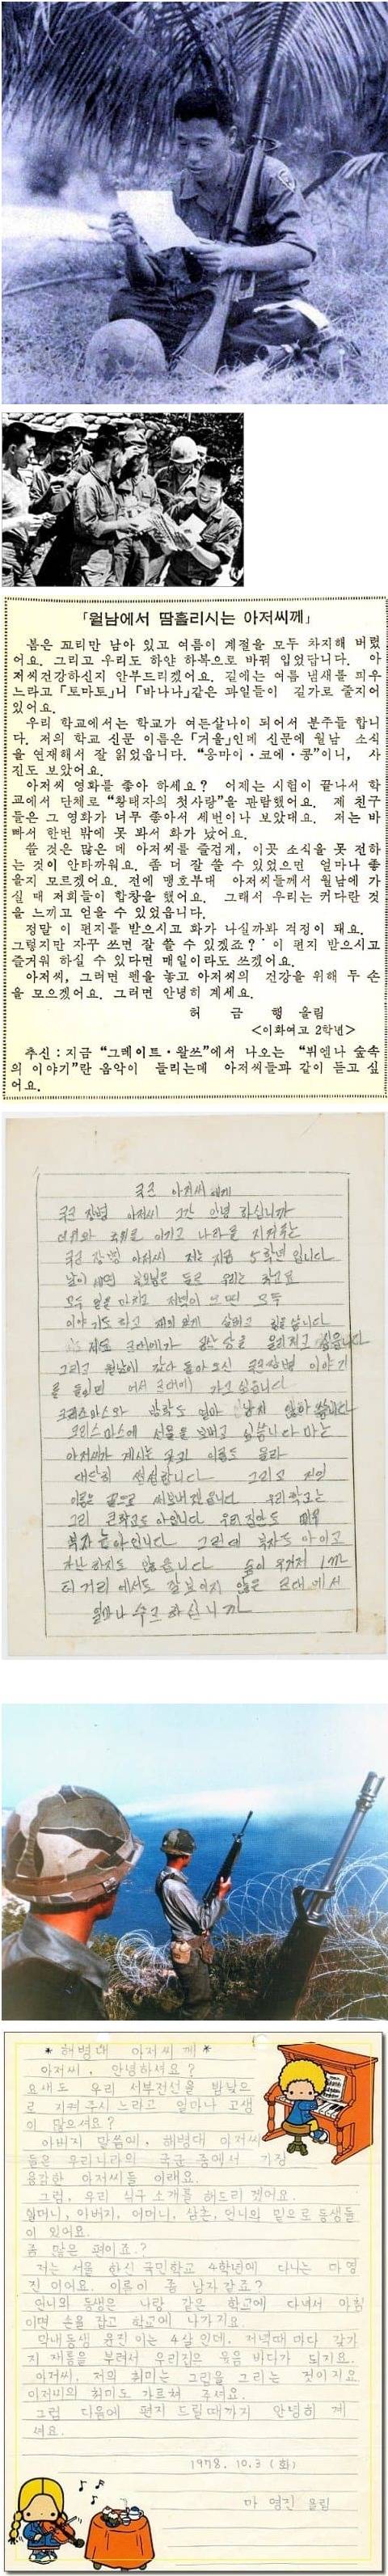 「월남에서 땀흘리시는 아저씨께」
봄은 꼬리만 남아 있고 여름이 계절을 모두 차지해 버렸
어요. 그리고 우리도 하얀 하복으로 바꿔 입었답니다. 아
저씨건강하신지 안부드리겠어요. 길에는 여름 냄새를 피우
느라고 「토마토」니 「바나나」같은 과일들이 길가로 줄지어
있어요.
우리 학교에서는 학교가 여든살나이 되어서 분주들 합니
다. 저의 학교 신문 이름은 「거울」인데 신문에 월남 소식
을 연재해서 잘 읽었읍니다. “옹마이·코에·콩”이니, 사
진도 보았어요.
아저씨 영화를 좋아 하세요? 어제는 시험이 끝나서 학
교에서 단체로 “황태자의 첫사랑”을 관람했어요. 제 친구
들은 그 영화가 너무 좋아서 세번이나 보았대요. 저는 바
빠서 한번 밖에 못 봐서 화가 났어요.
쓸 것은 많은 데 아저씨를 즐겁게, 이곳 소식을 못 전하
는 것이 안타까워요. 좀 더 잘 쓸 수 있었으면 얼마나 좋
을지 모르겠어요. 전에 맹호부대 아저씨들께서 월남에 가
실 때 저희들이 합창을 했어요. 그래서 우리는 커다란 것
을 느끼고 얻을 수 있었읍니다.
정말 이 편지를 받으시고 화가 나실까봐 걱정이 돼요.
그렇지만 자꾸 쓰면 잘 쓸 수 있겠죠? 이 편지 받으시고
즐거워 하실 수 있다면 매일이라도 쓰겠어요.
아저씨, 그러면 펜을 놓고 아저씨의 건강을 위해 두 손
을 모으겠어요. 그러면 안녕히 계세요.
허 금 행 올림
<이화여고 2학년>
추신:지금 “그레이트·왈쓰”에서 나오는 “뷔엔나 숲속
의 이야기”란 음악이 들리는데 아저씨들과 같이 듣고 싶
어요.
국군 아저씨에게
국군 장병 아저씨 그간 안녕 하십니까
더위와 추위를 이기고 나라를 지켜주는
국군 장병 아저씨 저는 지금 5학년 입니다
모두 일을 마치고 저녁이 되면 모두
이야기도 하고 재미있게 살하고 있읍니다
그리고 월남에 갔다 돌아오신 국군장병 이야기
를 들으면 어서 군대에 가고 싶습니다
크리스마스와 방학도 얼마 남지 않았습니다
크리스마스에 선물을 보내고 싶습니다 마는
아저씨가 계시는 곳과 이름도 몰라
대단히 섭섭합니다 그리고 저의
이름은 끝으로 써보내겠읍니다 우리학교는
그리 큰학교도 아닙니다 우리집안도 매우
부자는 아닙니다 그런데 부자도 아니고
가난하지도 않습니다 숲이 우거져 1m
터 거리에서도 잘보이지 않은 군대에서
얼마나 수고하십니까
* 해병대 아저씨 께 *
아저씨, 안녕하셔요?
요새도 우리 서부전선을 밤낮으
로 지켜 주시느라고 얼마나 고생
이 많으셔요?
아버지 말씀에, 해병대 아저씨
들은 우리나라의 국군 중에서 가장
용감한 아저씨들 이래요.
그럼, 우리 식구 소개를 해드리겠어요.
할머니, 아버지, 어머니, 삼촌, 언니의 밑으로 동생들
이 있어요.
좀 많은 편이죠?
저는 서울 한신 국민학교 4학년에 다니는 마영
진 이어요. 이름이 좀 남자같죠?
언니와 동생은 나랑 같은 학교에 다녀서 아침
이면 손을 잡고 학교에 나가지요.
막내동생 윤진이는 4살인데, 저녁때마다 갖가
지 재롱을 부려서 우리집은 웃음 바다가 되지요.
아저씨, 저의 취미는 그림을 그리는 것이지요
아저씨의 취미도 가르쳐 주셔요.
그럼 다음에 편지 드릴때까지 안녕히 계
셔요.
1978. 10. 3 (화)
마 영진 올림